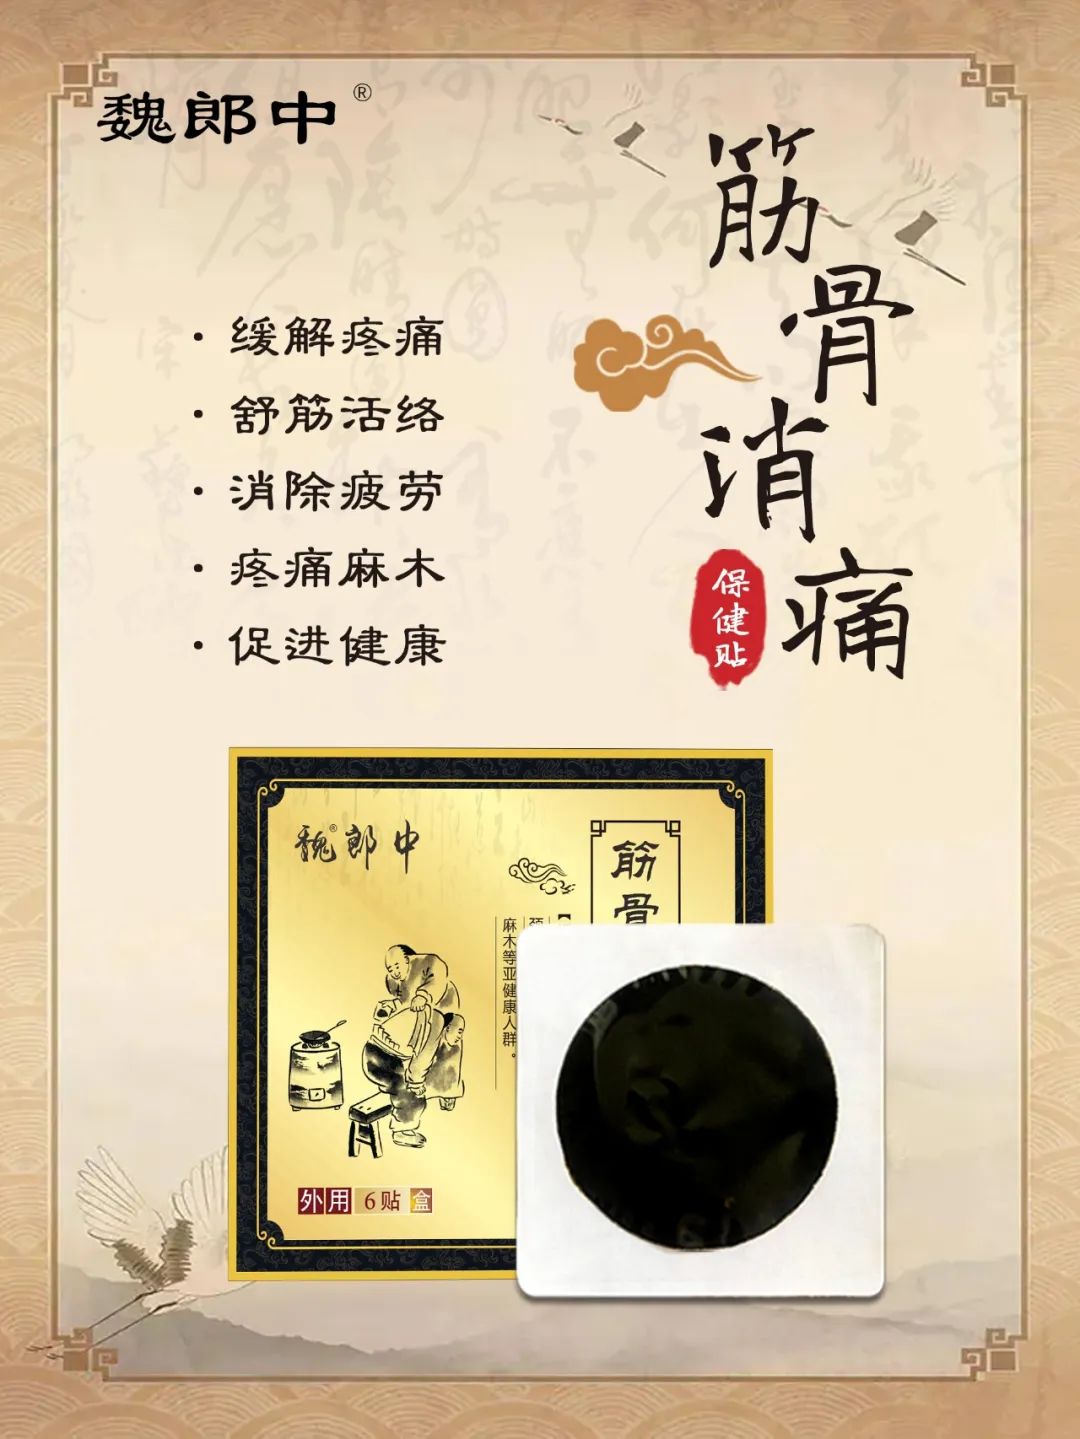 魏郎中®
筋骨消痛
保健贴
· 缓解疼痛
· 舒筋活络
· 消除疲劳
· 疼痛麻木
· 促进健康
魏®郎中
筋骨
麻木等亚健康人群。
外用 6贴 盒